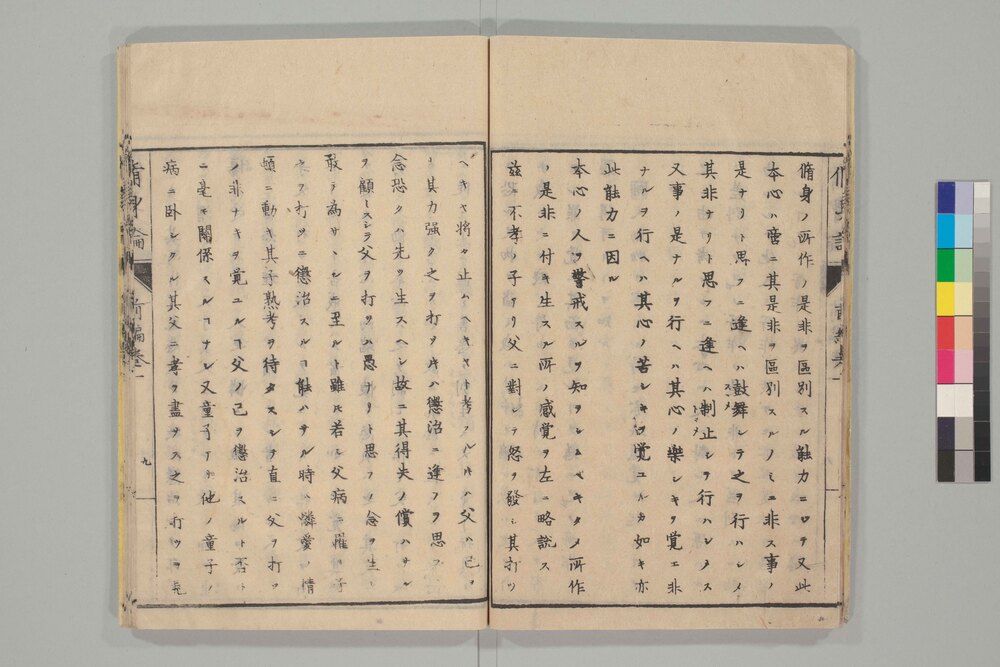 脩身ノ所作ノ是非ヲ區別スル能力ニシテ又此
本心ハ啻ニ其是非ヲ區別スルノミニ非ス事ノ
是ナリト思フニ逢ヘハ鼓舞シテ之ヲ行ハシメ
其非ナリト思フニ逢ヘハ制止シテ行ハシメス
又事ノ是ナルヲ行ヘハ其心ノ樂シキヲ覚エ非
ナルヲ行ヘハ其心ノ苦シキヲ覚ユルカ如キ亦
此能力ニ因ル
本心ノ人ヲ警戒スルヲ知ラシムベキタメ所作
ノ是非ニ付キ生スル所ノ感覚ヲ左ニ略説ス
茲ニ不孝ノ子アリ父ニ對シテ怒ヲ發シ其打ツ
ヘキヤ将タ止ムヘキヤト考フル片ハ父ハ己ヨ
リ其力強ク之ヲ打ツ片ハ懲治ニ逢フヲ思フ
念恐クハ先ツ生スヘシ故ニ其得失ノ償ハサル
ヲ顧ミスシテ父ヲ打ツハ愚ナリト思フノ念ヲ生シ
敢テ為サヽルニ至ルト雖𪜈若シ父病ニ罹リ子
之ヲ打ツニ懲治スルヿ能ハサル時ハ憐愛ノ情
頓ニ動キ其子熟考ヲ待タスシテ直ニ父ヲ打ツ
ノ非ナキヲ覚ユルヿ父ノ己ヲ懲治スルト否ト
ニ毫モ關係スルヿナシ又童子アリ他ノ童子ノ
病ニ卧シタル其父ニ孝ヲ盡サス之ヲ打ツヲ見
脩身論
前編巻一
九